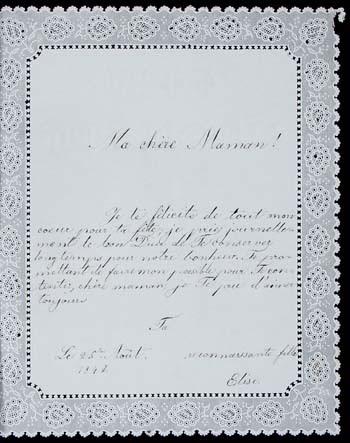 Ma chère Maman!
Je te félicite de tout mon
coeur pour ta fête, je prie journelle-
ment le bon Dieu de Te conserver
longtemps pour notre bonheur. Te pro-
mettant de faire mon possible pour Te con-
tenter, chère maman, je Te prie d'aimer
toujours
Ta
reconnaissante fille
Elise.
Le 25me Août.